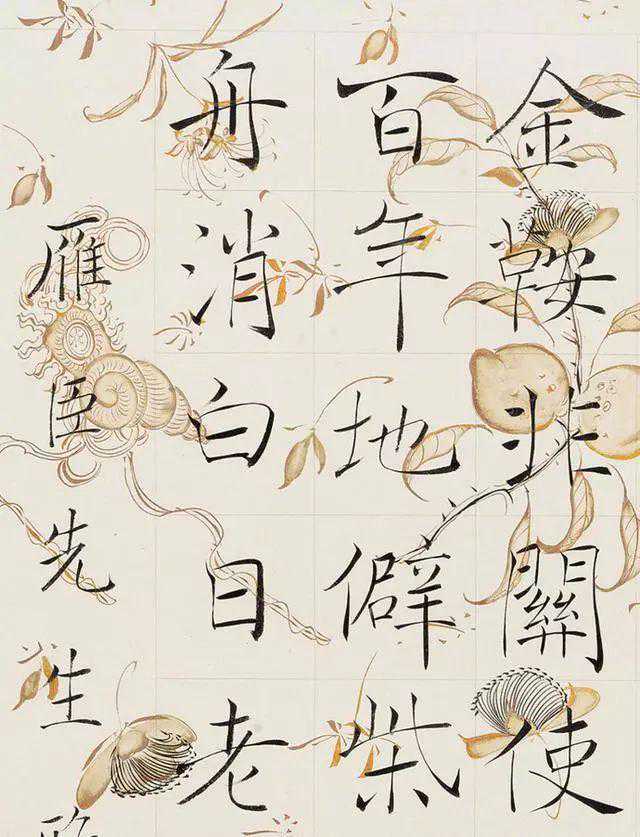 金鞍非關使
百年地僻柴
舟消白日老
雁臣先生